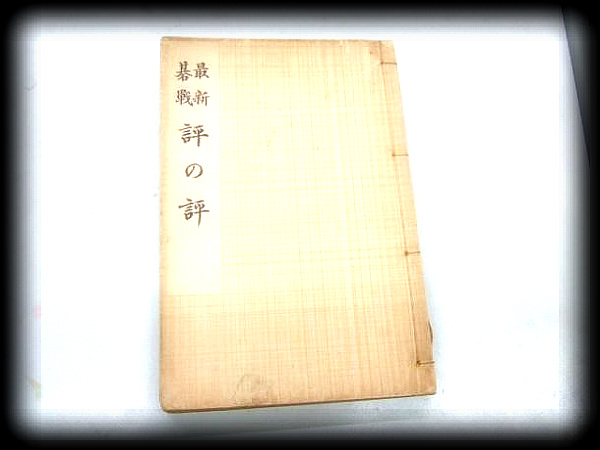 最新
碁戰
評の評